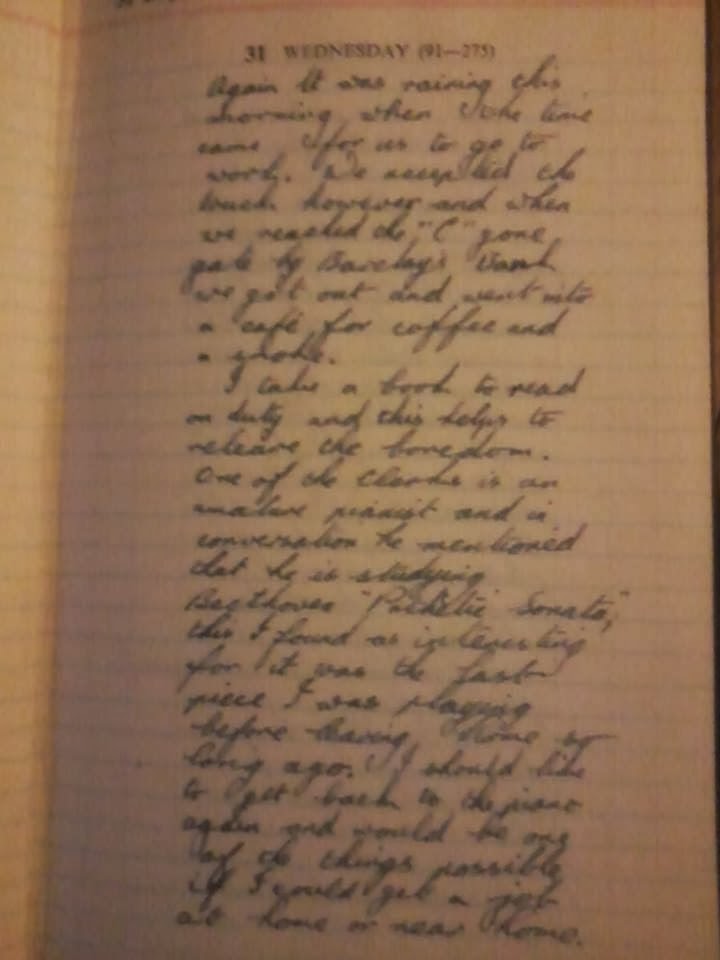 31 WEDNESDAY (91—275)
Again it was raining this
morning when the time
came for us to go to
work. We accepted the
truck however and when
we reached the "C" zone
gate by Barclay's Bank
we got out and went into
a café for coffee and
a smoke.
I take a book to read
on duty and this helps to
releave the boredom.
One of the Clerks is an
amature pianist and in
conversation he mentioned
that he is studying
Beethoven "Pathetic Sonata,"
this I found as interesting
for it was the last
piece I was playing
before leaving home so
long ago. I should like
to get back to the piano
again and would be one
of the things possible
if I could get a job
at home or near home.